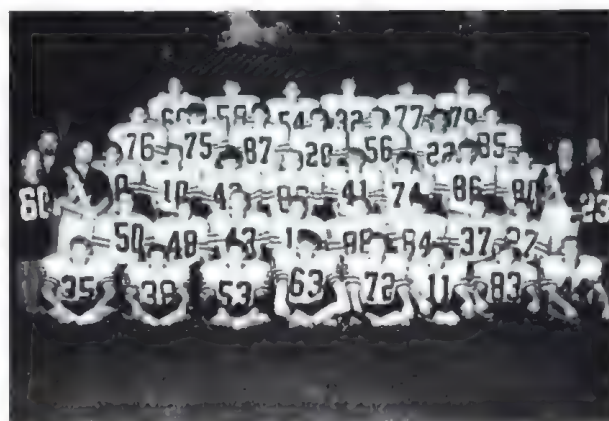 58 54 32 77 79
76 75 87 20 56 22 85
60 10 41 74 86 80 23
50 48 43 88 84 37 27
35 38 53 63 72 11 83